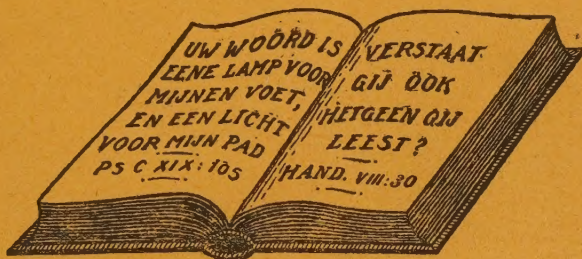 UW WOORD IS
EENE LAMP VOOR
MIJNEN VOET,
EN EEN LICHT
VOOR MIJN PAD
PS C XIX: 105
VERSTAAT
GIJ OOK
HETGEEN GIJ
LEEST?
HAND. VIII:30